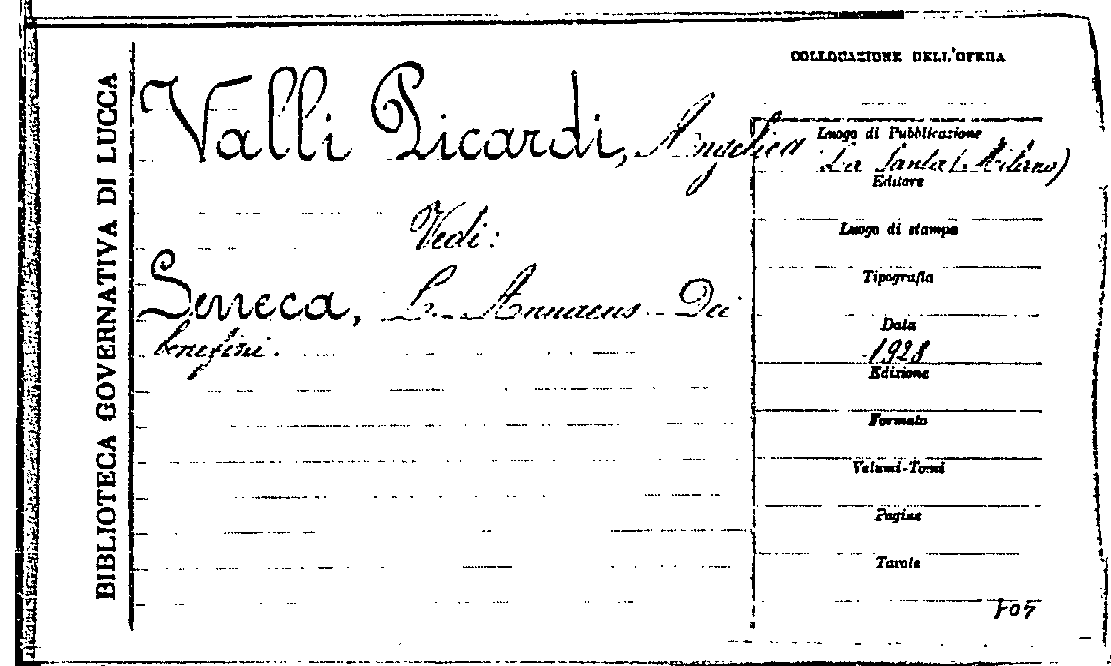 BIBLIOTECA GOVERNATIVA DI LUCCA
Valli Picardi, Angelica
Vedi:
Seneca, L. Annaeus Dei
benefizi.
COLLOCAZIONE DELL'OPERA
Luogo di Pubblicazione
La Santa (Milano)
Editore
Luogo di stampa
Tipografia
Data
1928
Edizione
Formato
Volumi-Tomi
Pagine
Tavole